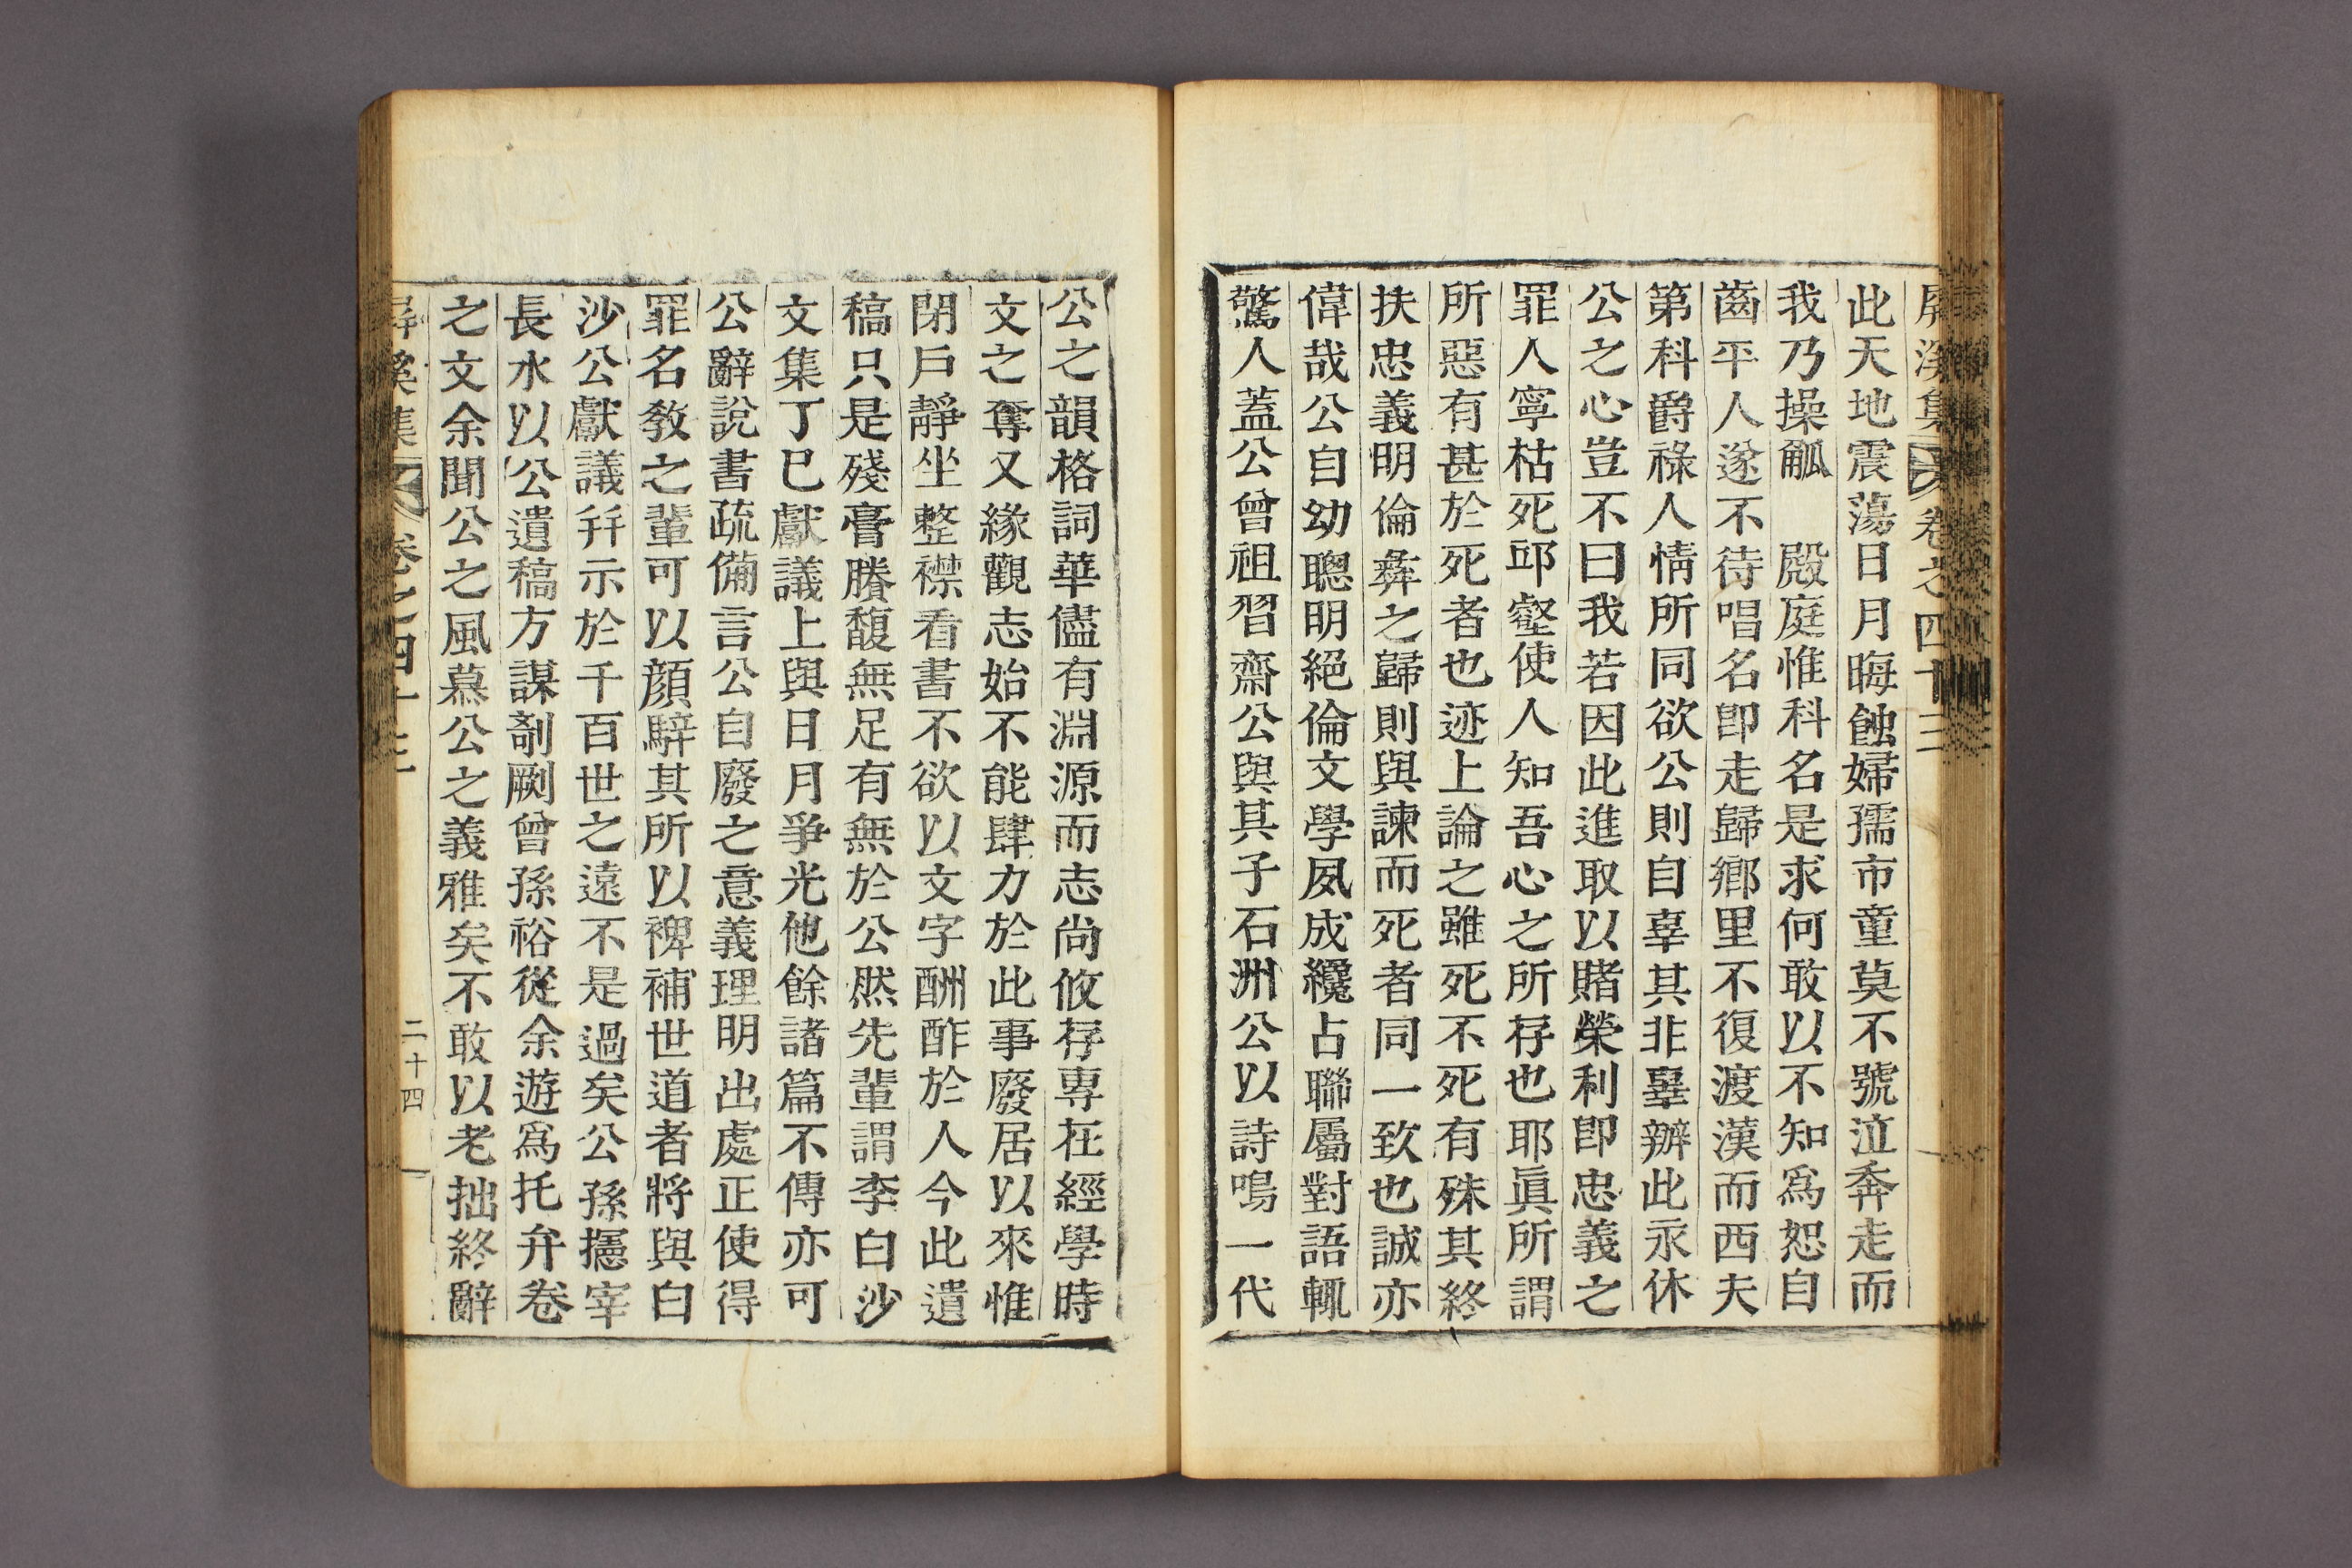 屛溪集 卷之四十三
此天地震蕩日月晦蝕婦孺市童莫不號泣奔走而
我乃操觚 殿庭惟科名是求何敢以不知爲恕自
齒平人遂不待唱名卽走歸鄕里不復渡漢而西夫
第科爵祿人情所同欲公則自辜其非辠辦此永休
公之心豈不曰我若因此進取以賭榮利卽忠義之
罪人寧枯死邱壑使人知吾心之所存也耶眞所謂
所惡有甚於死者也迹上論之雖死不死有殊其終
扶忠義明倫彝之歸則與諫而死者同一致也誠亦
偉哉公自幼聰明絕倫文學夙成纔占聯屬對語輒
驚人蓋公曾祖習齋公與其子石洲公以詩鳴一代
公之韻格詞華儘有淵源而志尙攸存専在經學時
文之奪又緣觀志始不能肆力於此事廢居以來惟
閉戶靜坐整襟看書不欲以文字酬酢於人今此遺
稿只是殘膏賸馥無足有無於公然先輩謂李白沙
文集丁巳獻議上與日月爭光他餘諸篇不傳亦可
公辭說書疏備言公自廢之意義理明出處正使得
罪名敎之輩可以顔騂其所以裨補世道者將與白
沙公獻議幷示於千百世之遠不是過矣公孫攇宰
長水以公遺稿方謀剞劂曾孫裕從余遊爲托弁卷
之文余聞公之風慕公之義雅矣不敢以老拙終辭
屛溪集 卷之四十三 二十四